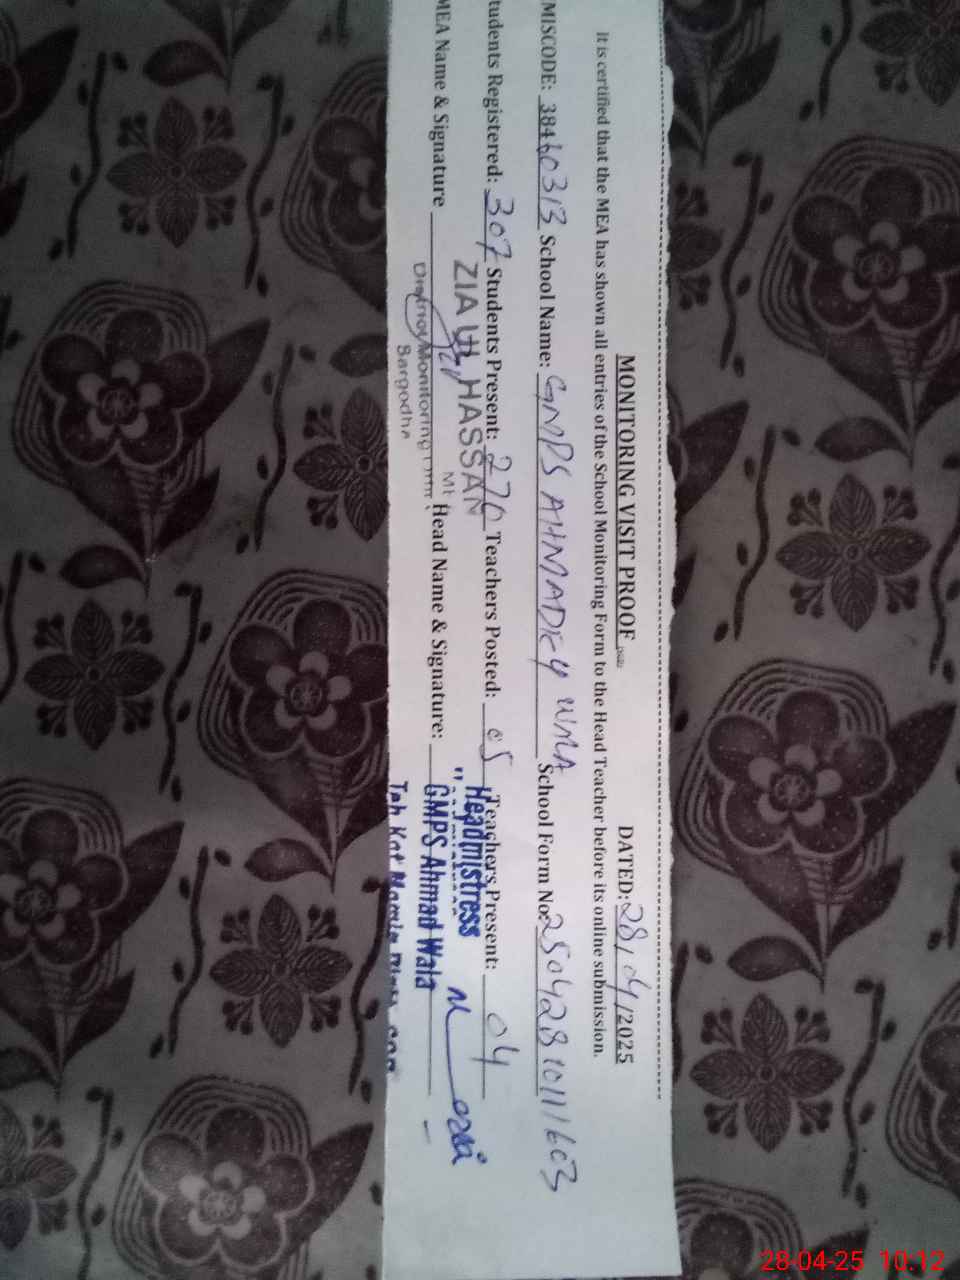 MONITORING VISIT PROOF DATED: 28/04/2025
It is certified that the MEA has shown all entries of the School Monitoring Form to the Head Teacher before its online submission.
MISCODE: 38460313 School Name: GMPS AHMADEY WALA School Form No: 250428101111603
tudents Registered: 307 Students Present: 270 Teachers Posted: 05 Teachers Present: 04
ZIA UL HASSAN
Headmistress
MEA Name & Signature Head Name & Signature:
GMPS Ahmad Wala
District Monitoring
Sargodha
Teh Kot
28-04-25 10:12